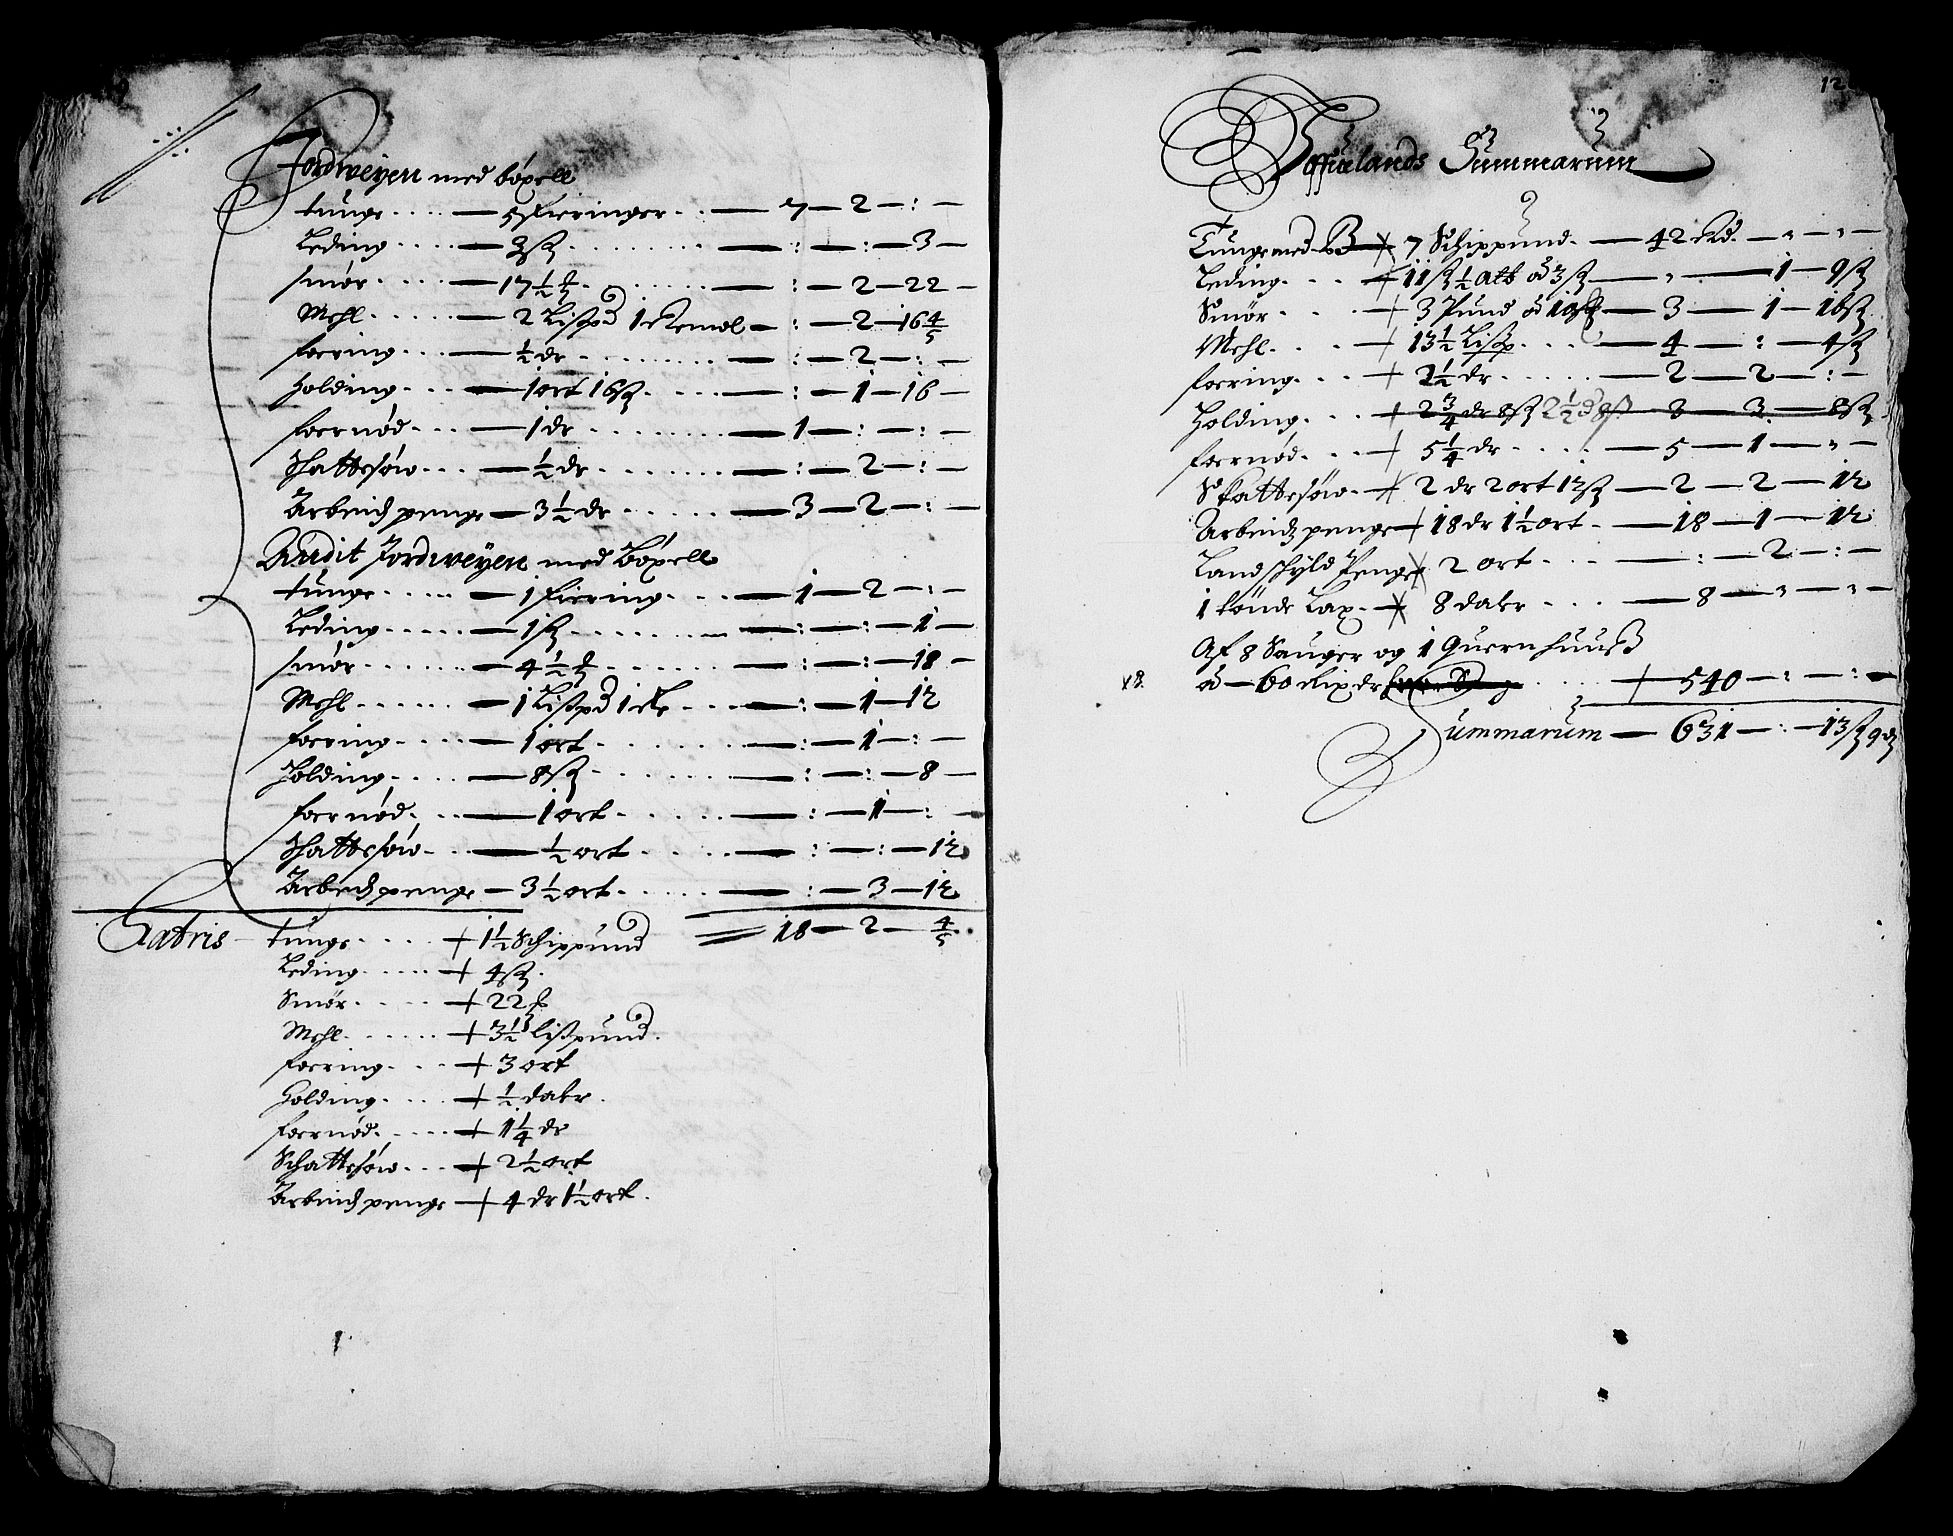 Jordweyen med böxell
tunge — 5 fieringer — 7 — 2 — : —
Leding — 3 ß — : — : — 3 —
smör — 17½ ℔ — : — 2 — 22 —
Mehl — 2 Lißpd 1 Remol — : — 2 — 16 4/5
foering — ½ dr — : — 2 — : —
holding — 1 ort 16 ß — : — 1 — 16 —
foernöd — 1 dr — 1 — : — : —
Schattesöw — ½ dr — : — 2 — : —
Arbeidtzpenge — 3½ dr — 3 — 2 — : —
Jordweÿen med Böxell
tunge — 1 fiering — 1 — 2 — : —
Leding — 1 ß — : — : — 1 —
smör — 4½ ℔ — : — : — 18 —
Mehl — 1 Lißpd 1 Re — : — 1 — 12
foering — 1 ort — : — 1 — : —
Holding — 8 ß — : — : — 8 —
foernöd — 1 ort — : — 1 — : —
Schattesöw — ½ ort — : — : — 12
Arbedtzpenge — 3½ ort — : — 3 — 12
18 — 2 — 4/5
Lateris tunge + 1½ Schippund
Leding + 4 ß
Smör + 22 ℔
Mehl + 3½ lißpund
foering + 3 ort
Holding + ½ daler
foernöd + 1¼ dr
Schattesöw + 2½ ort
Arbeidtzpenge + 4 dr 1½ ort
12
Summarum
Tunge med B + 7 Schippund — 42 Rd — " — " —
Leding + 11 ß ½ alb od 3 ß — " — 1 — 9 ß
Smör + 3 Pund — 3 — 1 — 16 ß
Mehl + 13½ Lißp — 4 — : — 4 ß
foering + 2½ dr — 2 — 2 — : —
Holding + 2¾ dr 8 ß 2½ d 8 ß — 3 — 8 ß
foernöd + 5¼ dr — 5 — 1 — " —
Skattesöw + 2 dr 2 ort 12 ß — 2 — 2 — 12
Arbeidtzpenge + 18 dr 1½ ort — 18 — 1 — 12
Landschyld Penge + 2 ort — : — 2 — : —
1 tönde Lax + 8 daler — 8 — " — " —
Af 8 Sauger og 1 Quernhuuß
od — 60 Rixdr + 540 — : — : —
Summarum — 631 — : — 13 ß 9